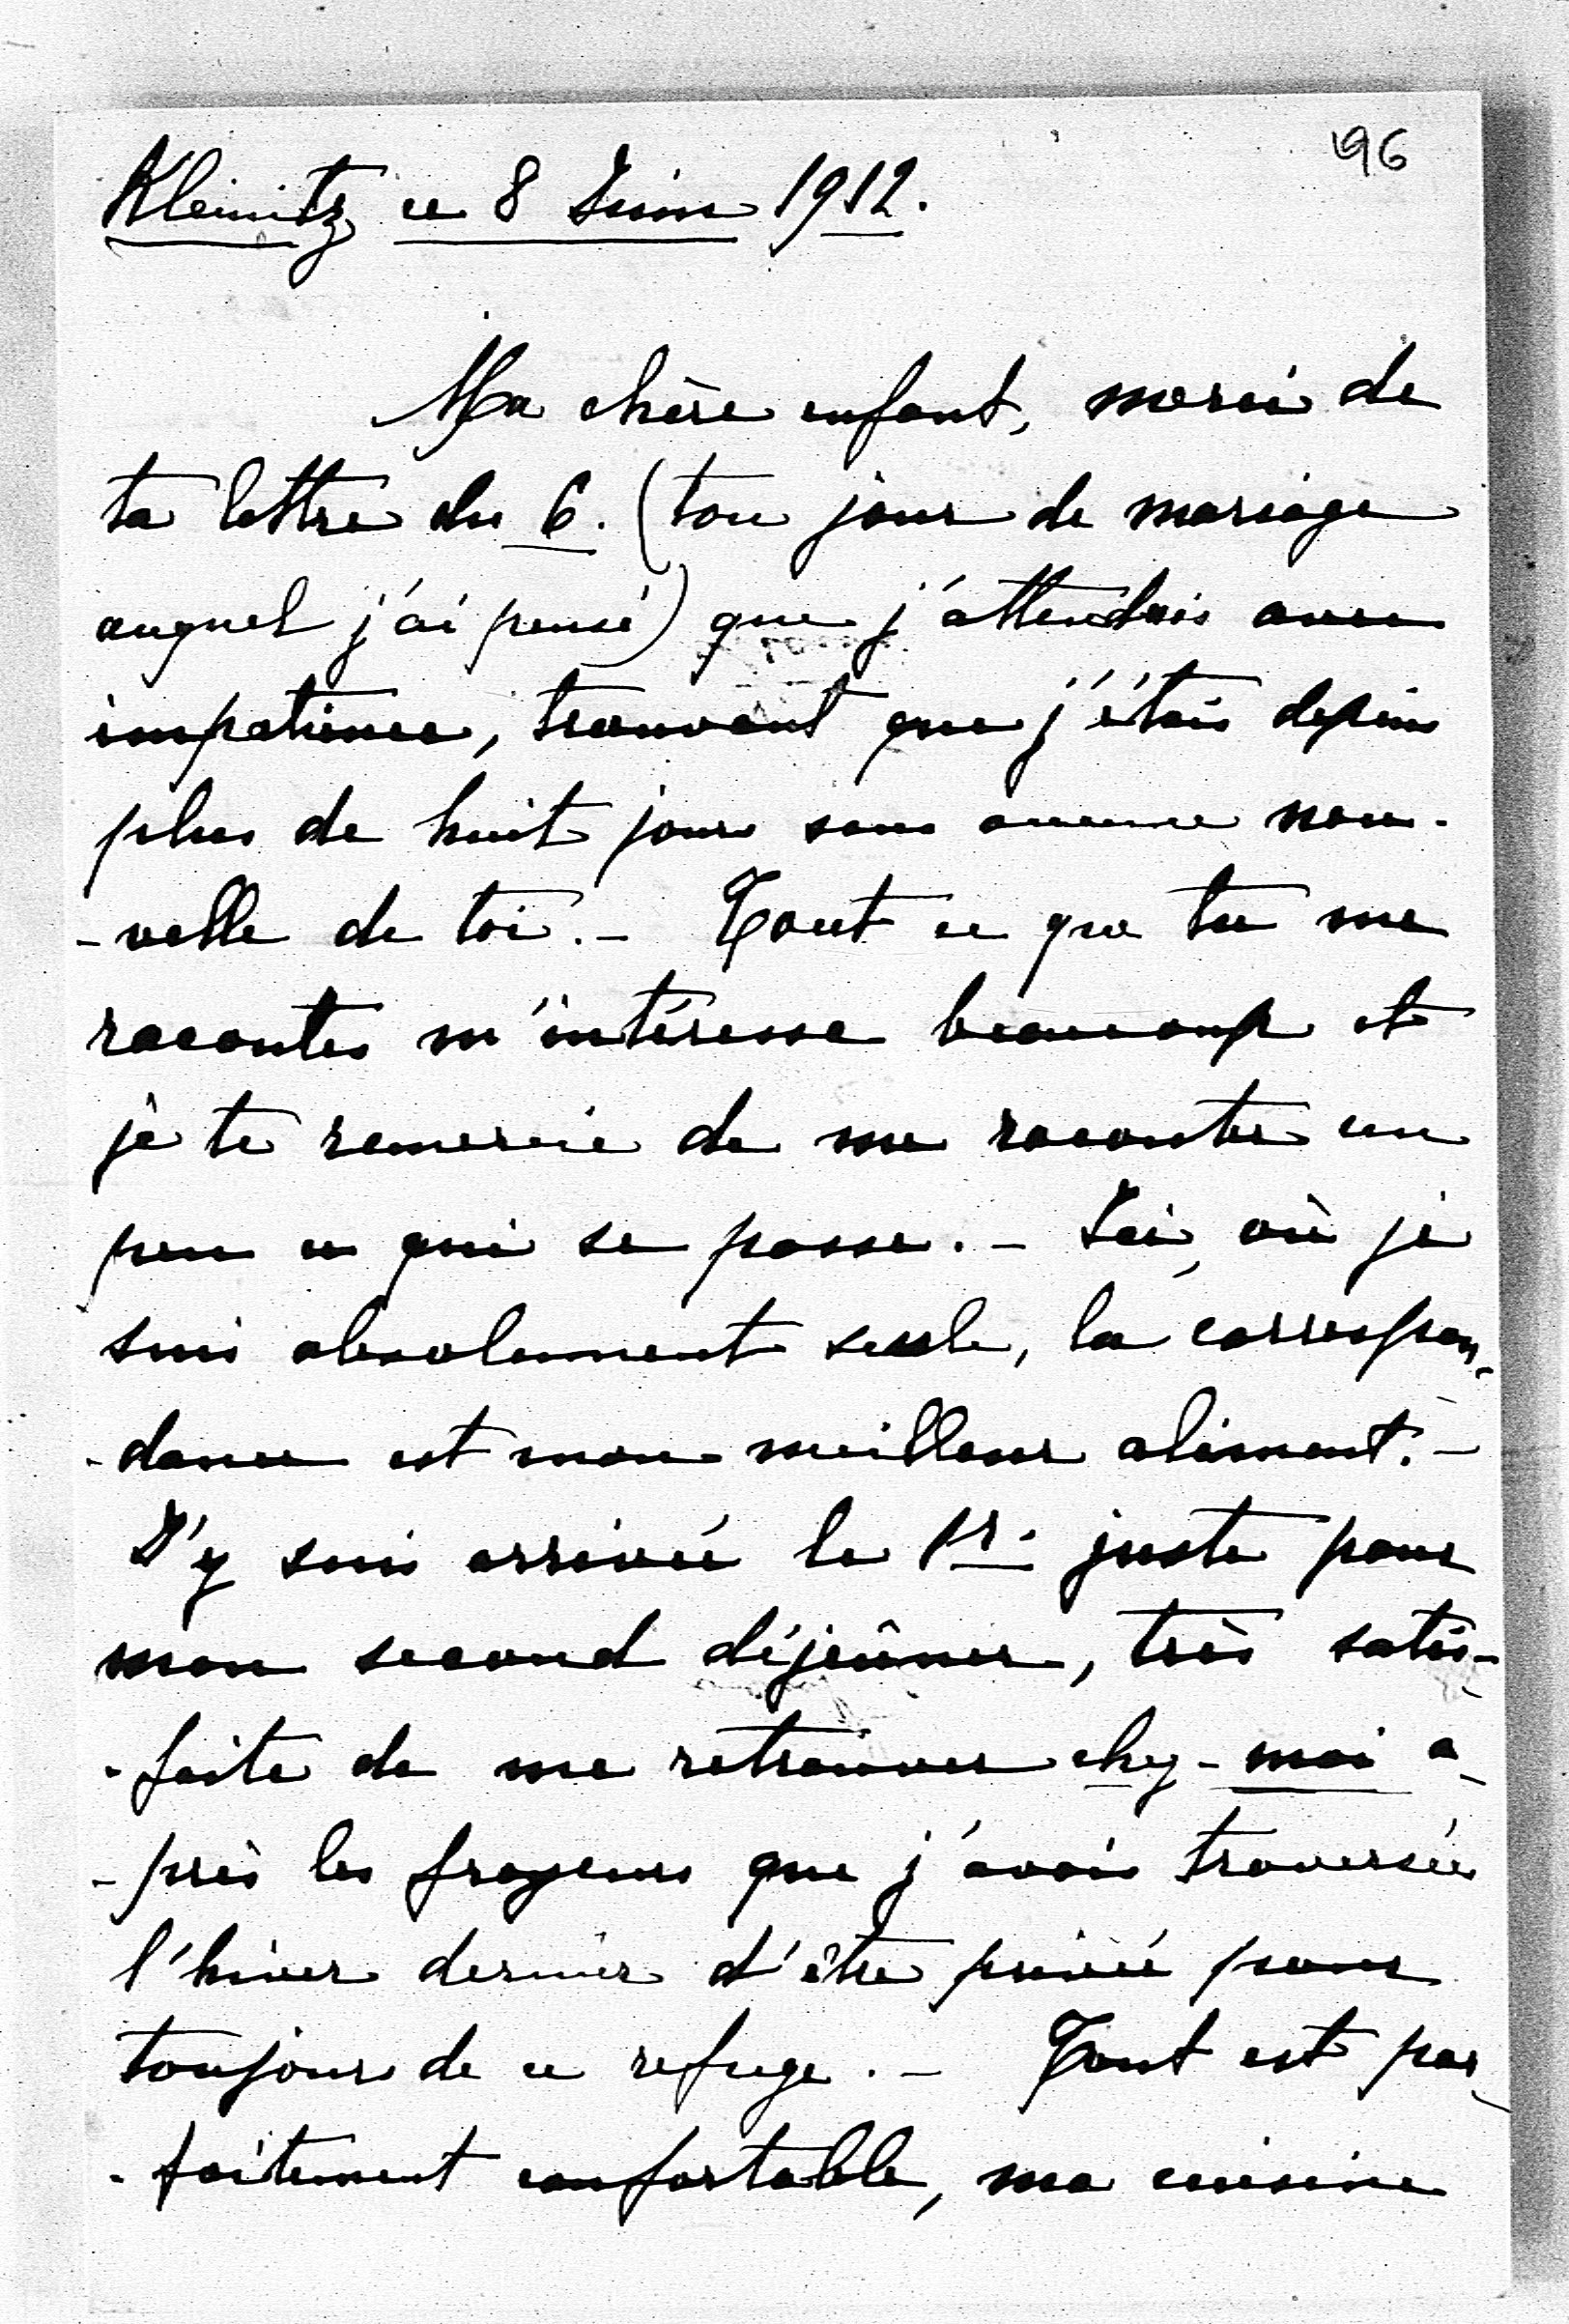 96
Kleinitz ce 8 Juin 1912.
Ma chère enfant, merci de
ta lettre du 6. (ton jour de mariage
auquel j'ai pensé) que j'attendais avec
impatience, trouvant que j'étais depuis
plus de huit jours sans aucune nou-
-velle de toi. - Tout ce que tu me
racontes m'intéresse beaucoup et
je te remercie de me raconter un
peu ce qui se passe. - Ici, où je
suis absolument seule, la correspon-
-dance est mon meilleur aliment. -
J'y suis arrivée le 1r. juste pour
mon second déjeûner, très satis-
-faite de me retrouver chez-moi a-
-près les frayeurs que j'avais traversées
l'hiver dernier d'être privée pour
toujours de ce refuge. - Tout est par-
-faitement confortable, ma cuisine